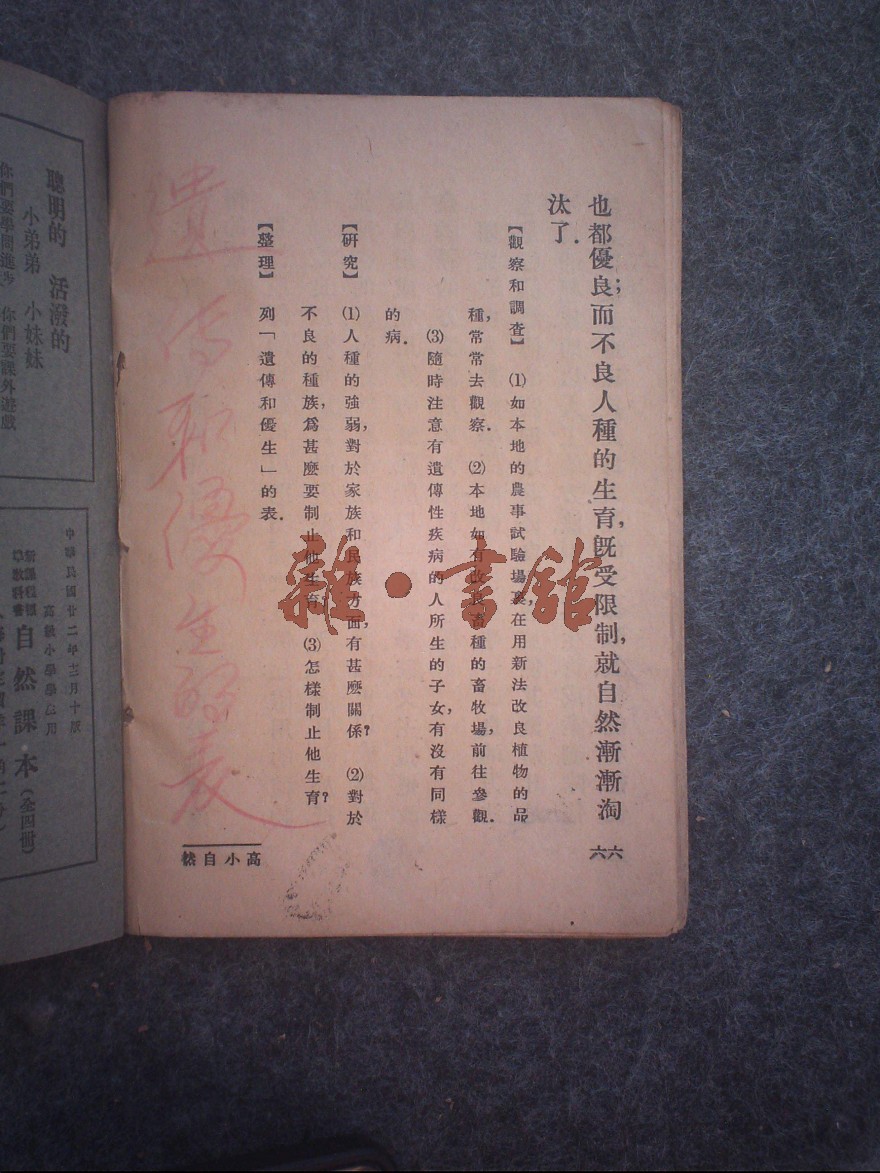 也都優良；而不良人種的生育，旣受限制，就自然漸漸淘
汰了．
【觀察和調查】 ⑴如本地的農事試驗場裏，在用新法改良植物的品
種，常常去觀察． ⑵本地如有改良畜種的畜牧場，前往參觀．
⑶隨時注意有遺傳性疾病的人所生的子女，有沒有同樣
的病．
【研究】 ⑴人種的強弱，對於家族和民族方面，有甚麼關係？ ⑵對於
不良的種族，爲甚麼要制止他生育？ ⑶怎樣制止他生育？
【整理】 列「遺傳和優生」的表．
遺傳和優生的表
六六
高小自然
雜·書館
聰明的 活潑的
小弟弟 小妹妹
你們要學問進步 你們要課外遊戲
中華民國廿二年 月十版
高級小學學生用
自然課本（全四冊）